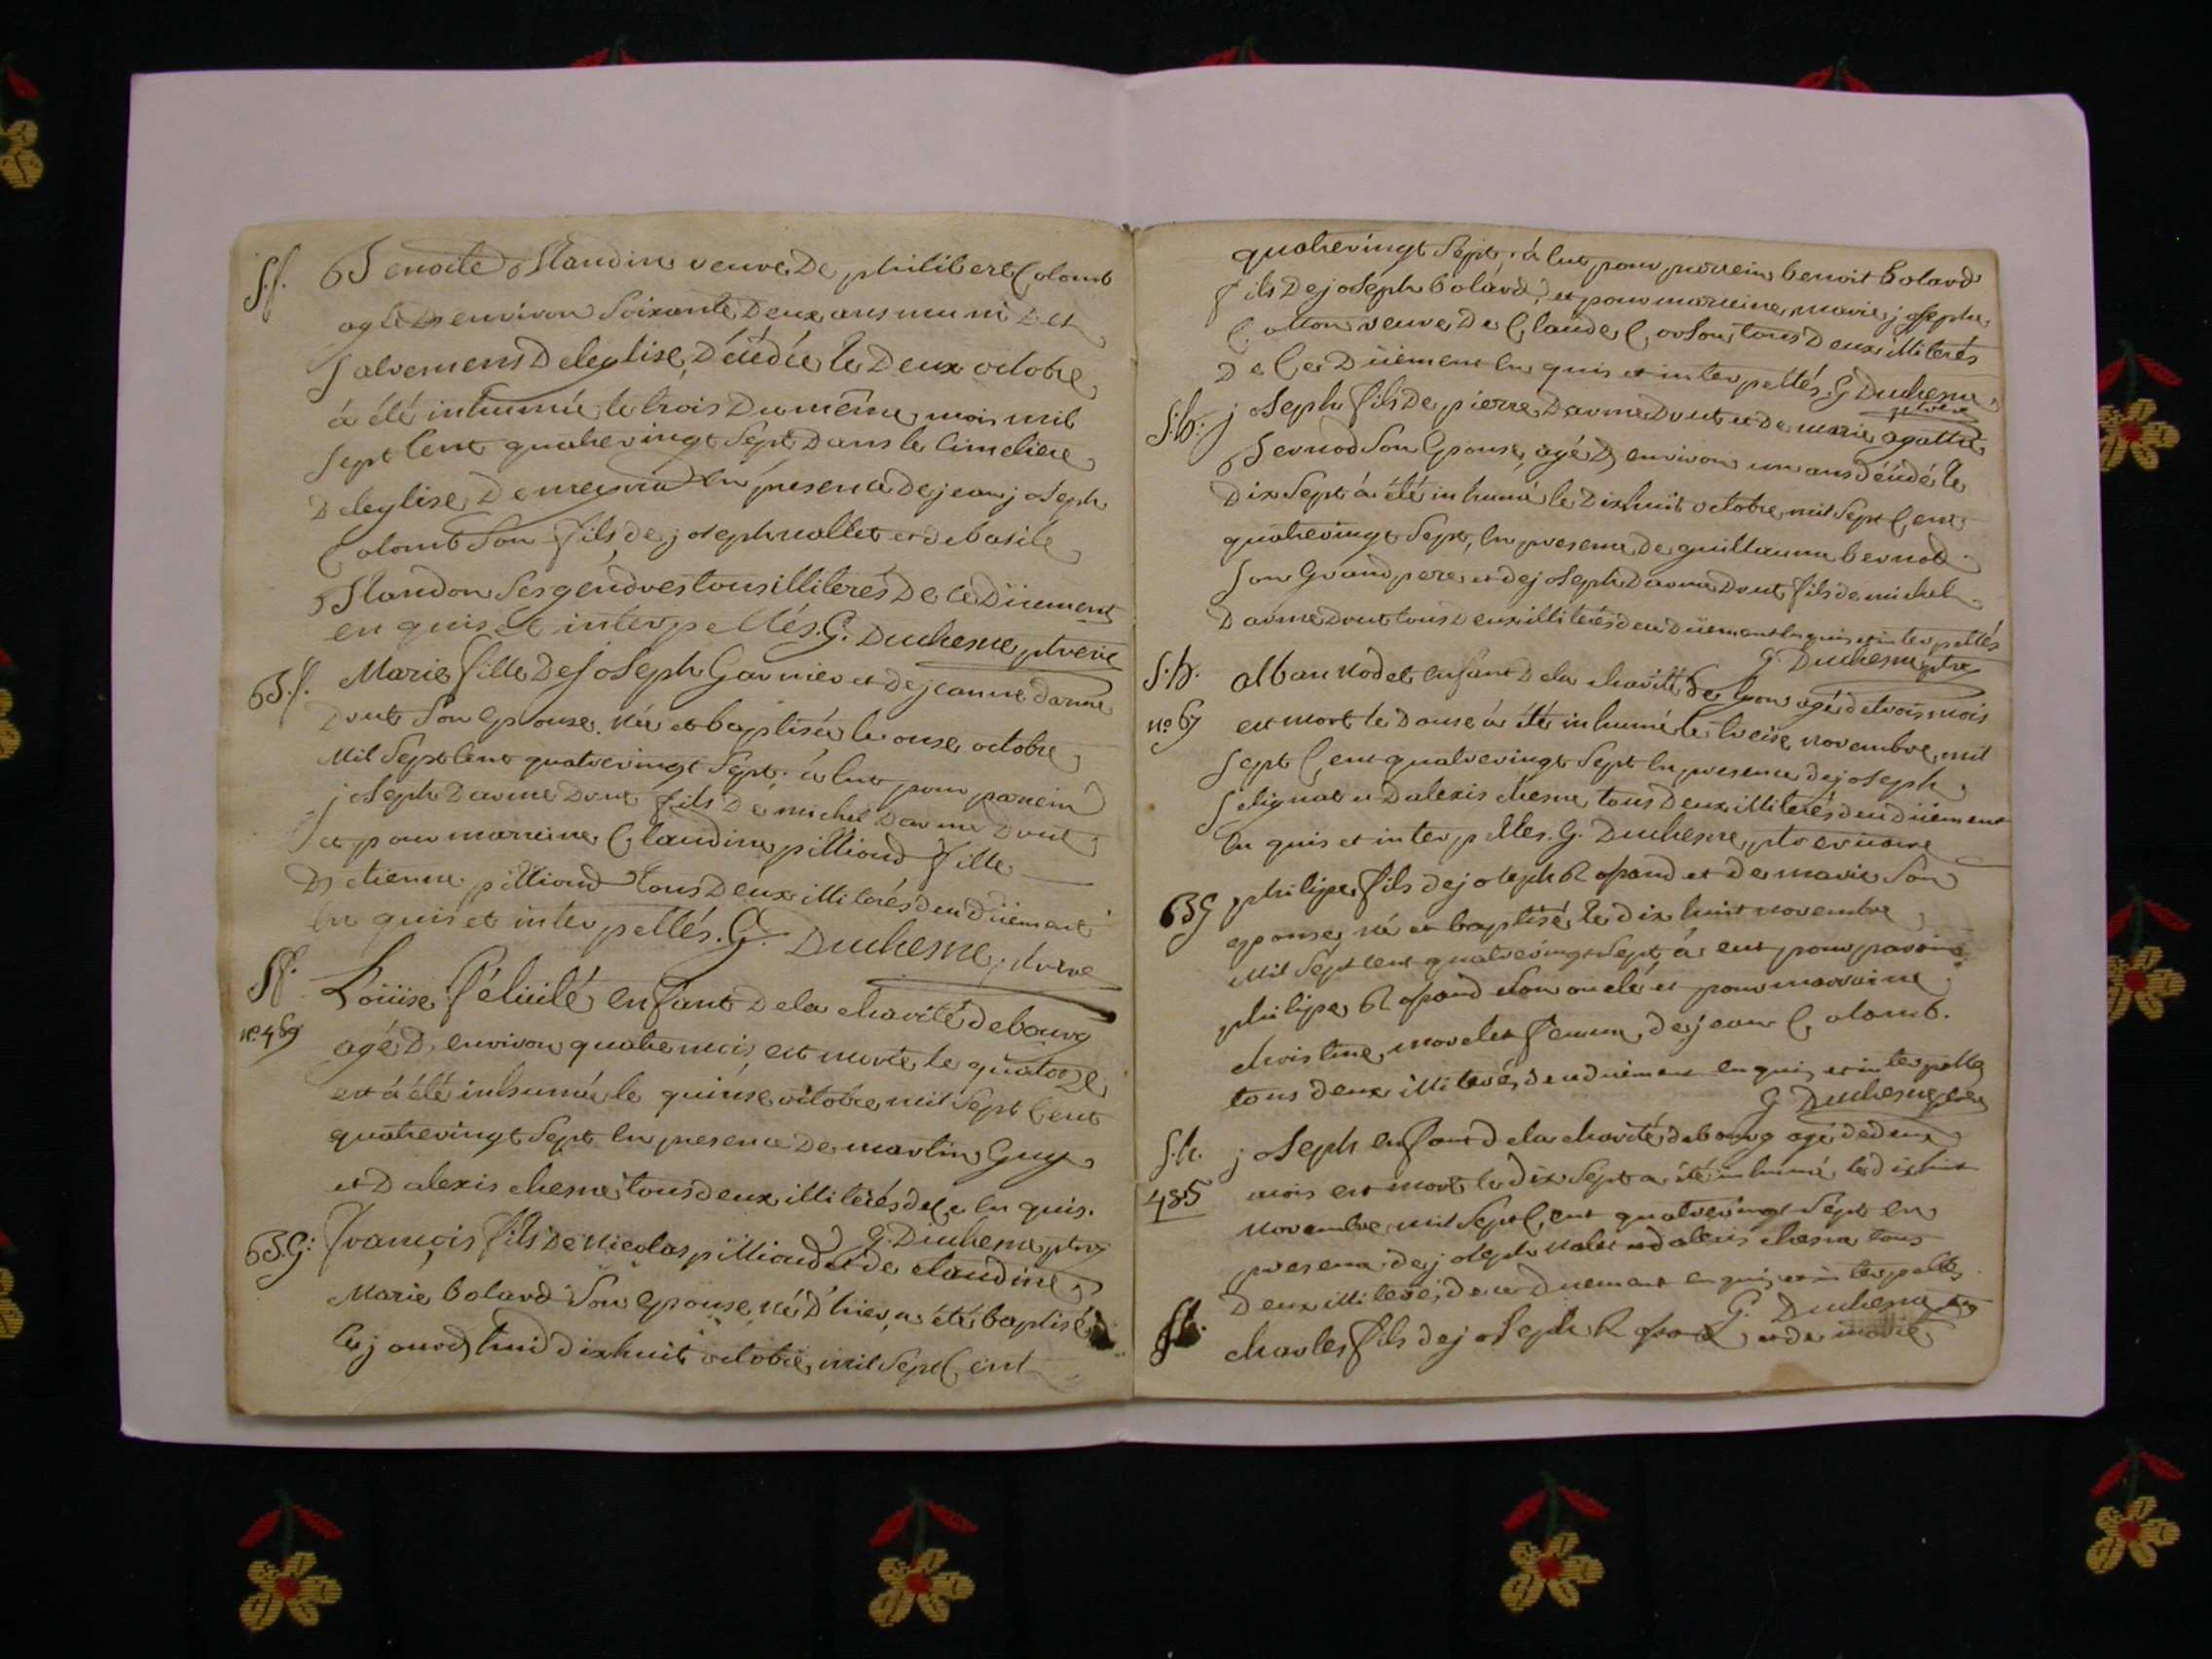 S.f. Benoite Blandin veuve De philibert Colomb
agée D environ Soixante Deux ans muni Des
Sacremens De leglise, Décédée le Deux octobre
á été inhumée le trois Du même mois mil
Sept Cent quatrevingt Sept Dans le Cimetiere
De leglise De En presence De jean joseph
Colomb Son fils, de joseph vallet et de basile
Blandon Ses gendres tous illiterés De ce Düement
en quis et interpellés. G. Duchesne, ptre vic
B.f. Marie fille De Joseph Garnier et de jeanne darme
Dout Son Epouse. Née et baptisée le onse octobre
Mil Sept Cent quatrevingt Sept. á Eut pour parein
joseph Darme Dout fils De michel Darme Dout
et pour marreine Claudine pilliond fille
D etienne pilliond tous Deux illiterés de ce düement
En quis et interpellés. G. Duchesne, ptre vic
S.f. Loüise félicité enfant De la charité de bourg
no 469 agée D environ quatre mois est morte le quatorze
et á été inhumée le quinse octobre mil Sept Cent
quatrevingt Sept En presence De martin Guy
et D alexis chesne tous deux illiterés de Ce En quis.
G. Duchesne ptre
B.G: françois fils De Nicolas pilliond et de claudine
Marie bolard Son Epouse, Né D'hier, a été baptisé
Cej ourd huid dixhuit octobre mil Sept Cent
quatrevingt Sept. á Eut pour parrein benoit bolard
fils De joseph bolard, et pour marreine marie josephe
Cotton veuve De Claude Corson tous Deux illiterés
De Ce Düement En quis et interpellés. G Duchesne
ptre vic
S.h: joseph fils De pierre Darme Dout et De marie agathe
Bernod Son Epouse, agé D environ un ans décédé le
Dix Sept á été inhumé le Dixhuit octobre mil Sept Cent
quatrevingt Sept, En presence De guillaume bernod
Son Grand pere et de joseph Darme Dout fils de michel
Darme Dout tous Deux illiterés de ce Düement En quis et interpellés
G. Duchesne ptre
S.h. alban Nodet Enfant De la charité de lyon agé de trois mois
no 67 est mort le Douse á été inhumé le treise novembre mil
Sept Cent quatrevingt Sept En presence de joseph
Selignat et D alexis chesne tous Deux illiterés de ce düement
En quis et interpellés. G. Duchesne, ptre vicaire
BG philipe fils de joseph Rofrand et de marie Son
epouse, né et baptisé le dix huit novembre
Mil Sept Cent quatrevingt Sept, á eut pour parain
philipe Rofrand Son oncle et pour marraine
christine morelet femme, de jean Colomb.
tous deux illiterés de ce duement en quis et interpellés
G Duchesne ptre
S.h. joseph enfant de la charité de bourg agé de deux
485 mois est mort le dix Sept a été inhumé le dixhuit
novembre mil Sept Cent quatrevingt Sept en
presence de joseph valet et d alexis chesne tous
Deux illiterés de ce duement en quis et interpellés
G. Duchesne ptre
Sh. charles fils de joseph Rofrand et de marie